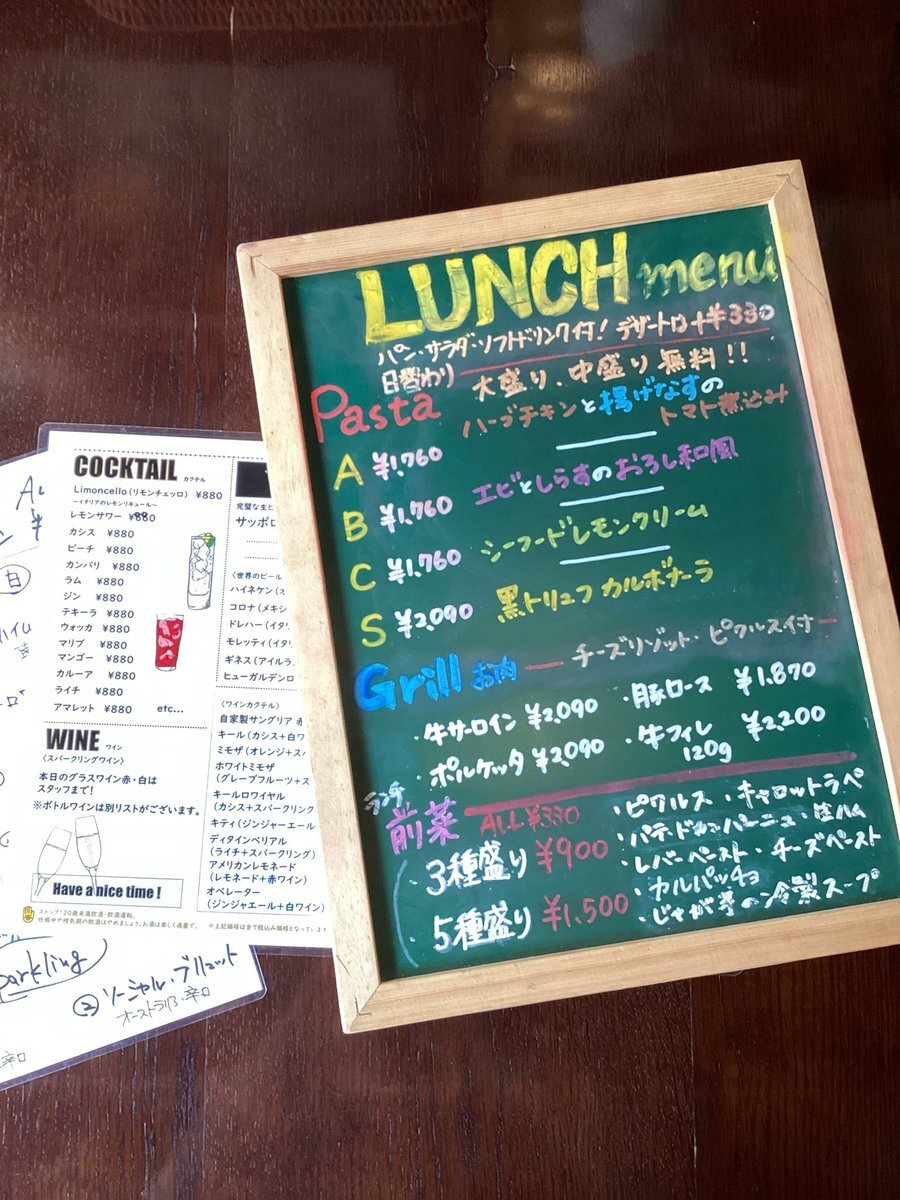 LUNCH menu
パン・サラダ・ソフトドリンク付! デザートは+¥330
日替わり 大盛り、中盛り 無料!!
Pasta
A ¥1,760 ハーブチキンと揚げなすの
トマト煮込み
B ¥1,760 エビとしらすのおろし和風
C ¥1,760 シーフードレモンクリーム
S ¥2,090 黒トリュフ カルボナーラ
Grill お肉 チーズリゾット・ピクルス付
・牛サーロイン ¥2,090 ・豚ロース ¥1,870
・ポルケッタ ¥2,090 ・牛フィレ ¥2,200
120g
ランチ
前菜 ALL ¥330
3種盛り ¥900
5種盛り ¥1,500
・ピクルス ・キャロットラペ
・パテドカンパーニュ ・生ハム
・レバーペースト ・チーズペースト
・カルパッチョ
・じゃが芋の冷製スープ
COCKTAIL カクテル
Limoncello(リモンチェッロ) ¥880
~イタリアのレモンリキュール~
レモンサワー ¥880
カシス ¥880
ピーチ ¥880
カンパリ ¥880
ラム ¥880
ジン ¥880
テキーラ ¥880
ウォッカ ¥880
マリブ ¥880
マンゴー ¥880
カルーア ¥880
ライチ ¥880
アマレット ¥880 etc...
WINE ワイン
〈スパークリングワイン〉
本日のグラスワイン赤・白は
スタッフまで!
※ボトルワインは別リストがございます。
Have a nice time!
ストップ!20歳未満飲酒・飲酒運転。
妊娠中や授乳期の飲酒はやめましょう。お酒は楽しく適量で。
完璧な生ビ
サッポロ
〈世界のビール
ハイネケン(オ
コロナ(メキシ
ドレハー(イタ
モレッティ(イタリ
ギネス(アイルラ
ヒューガルデンロ
〈ワインカクテル〉
自家製サングリア 赤
キール(カシス+白ワ
ミモザ(オレンジ+ス
ホワイトミモザ
(グレープフルーツ+ス
キールロワイヤル
(カシス+スパークリング
キティ(ジンジャーエール
ディタインペリアル
(ライチ+スパークリング)
アメリカンレモネード
(レモネード+赤ワイン)
オペレーター
(ジンジャエール+白ワイン)
※上記価格は全て税込み価格となっています
白
parkling
② ソーシャル・ブリュット
オーストラリア・辛口
辛口